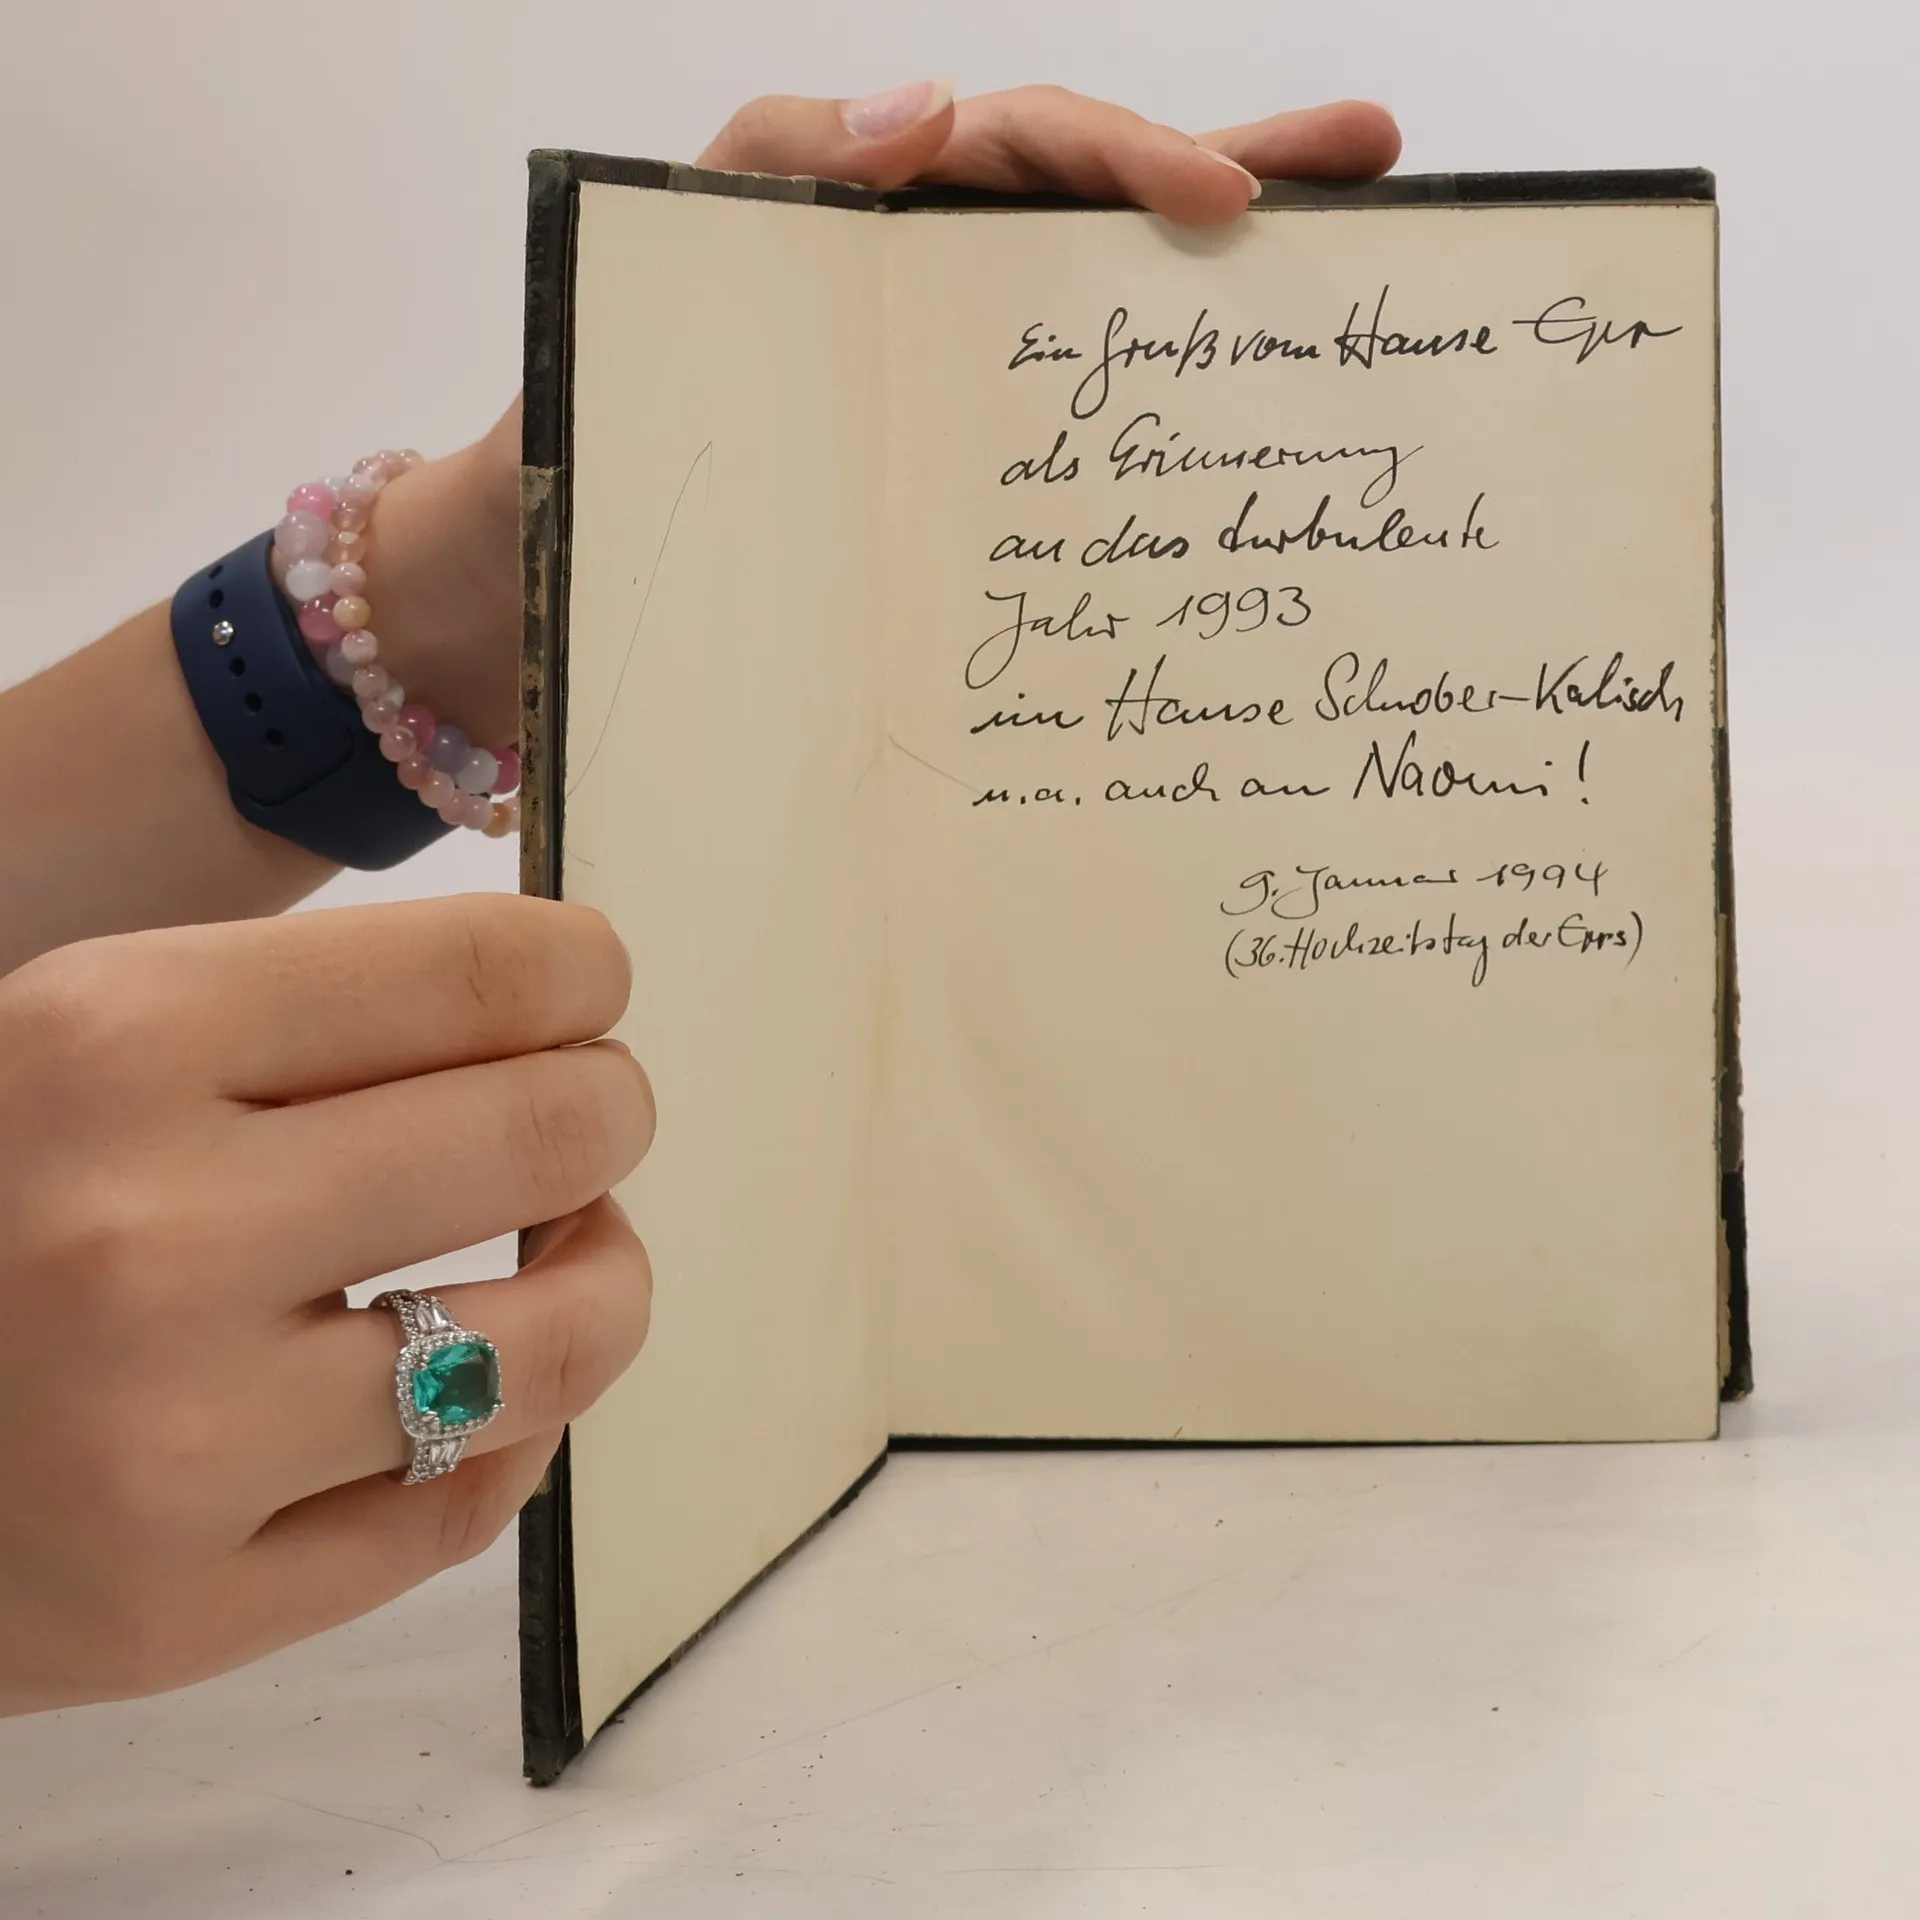 Ein Gruß vom Hause Epr
als Erinnerung
an das turbulente
Jahr 1993
im Hause Schober-Kalisch
u.a. auch an Naomi!
9. Januar 1994
(36. Hochzeitstag der Eprs)